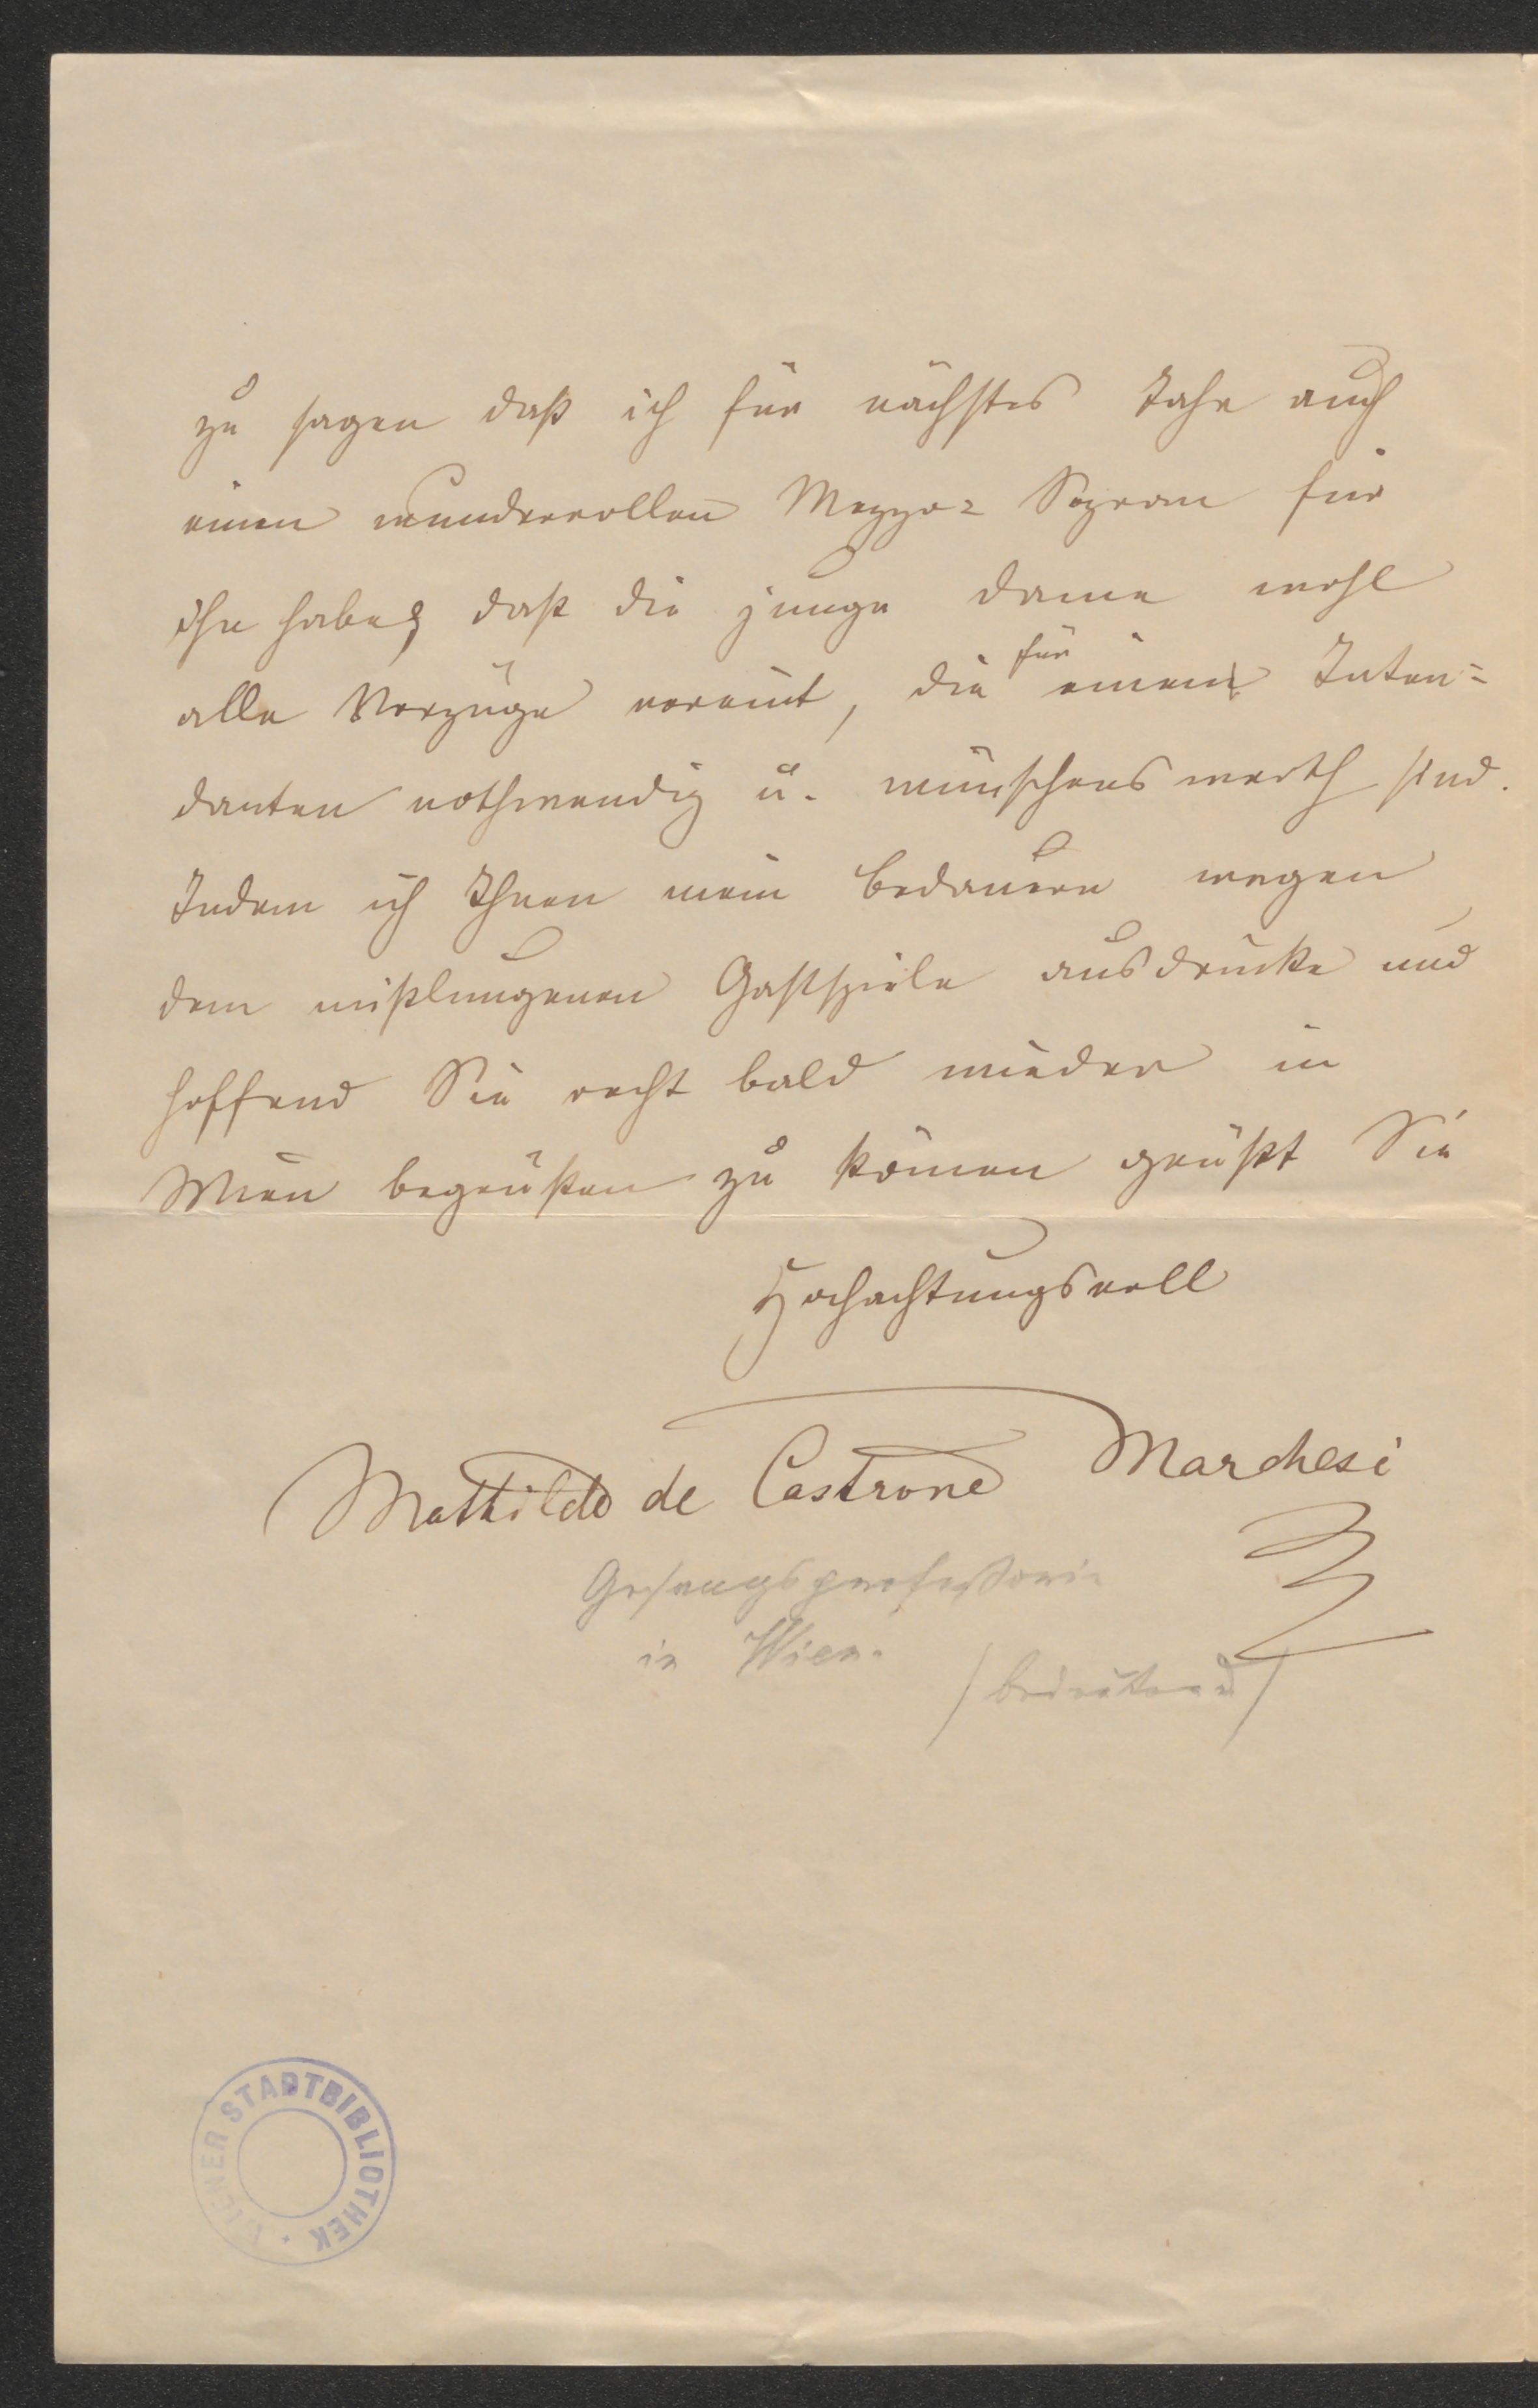 zu sagen daß ich für nächstes Jahr auch
einen wundervollen Mezzo= Sopran für
ihn habe, daß die junge Dame wohl
alle Vorzüge vereint, die für einen Inten=
danten nothwendig u. wünschenswerth sind.
Indem ich Ihnen mein Bedauern wegen
dem mißlungenen Gastspiele ausdrücke und
hoffend Sie recht bald wieder in
Wien begrüßen zu können grüßt Sie
Hochachtungsvoll
Mathilde de Castrone Marchesi
Gesangsprofessorin
in Wien.
/bedeutend/
WIENER STADTBIBLIOTHEK